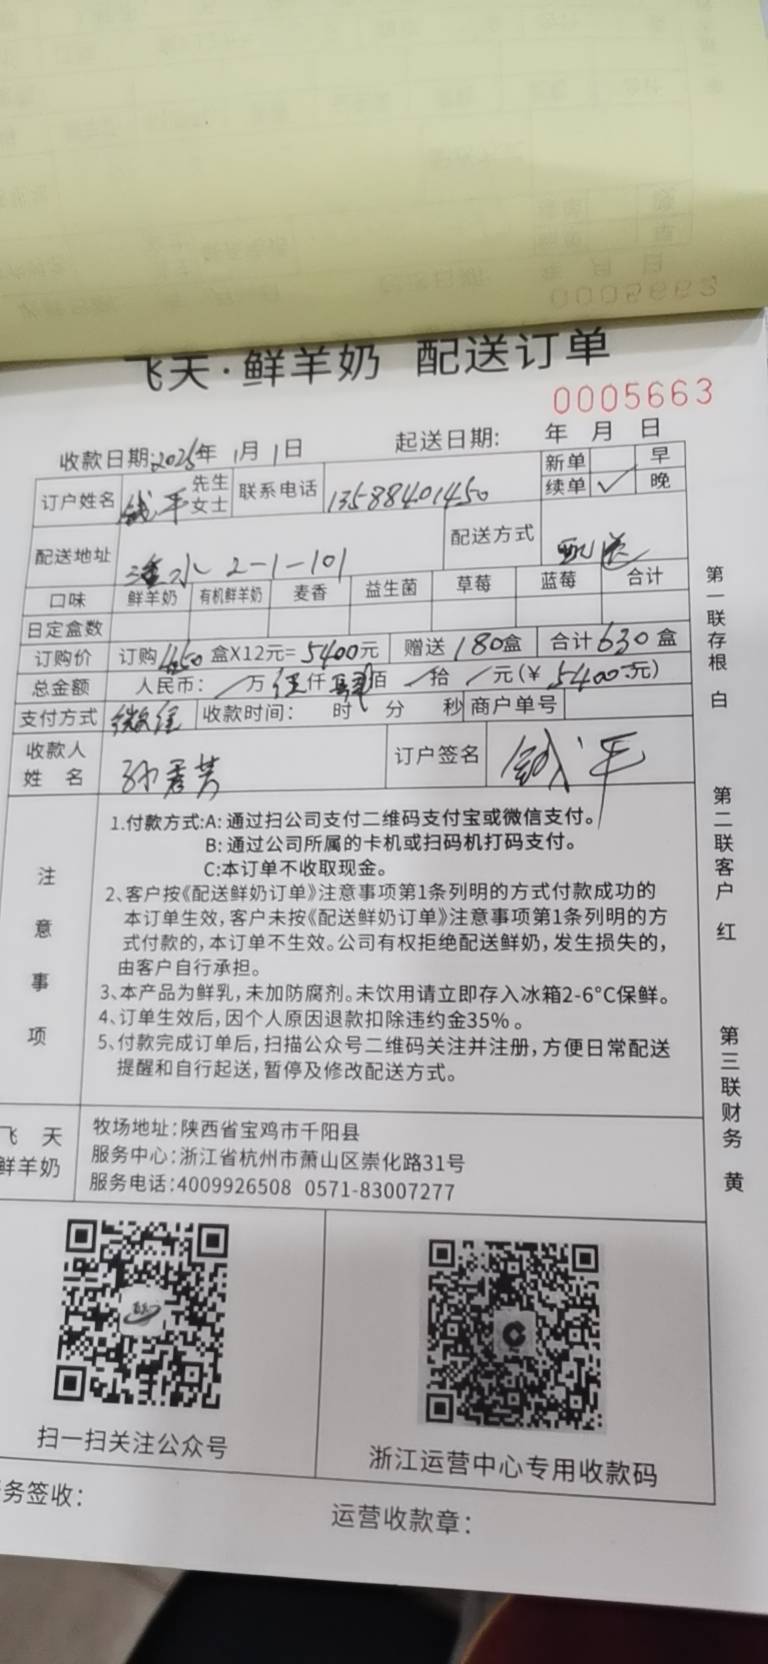 飞天·鲜羊奶 配送订单
0005663
收款日期:2025年1月1日 起送日期: 年 月 日
订户姓名 钱平 先生 女士 联系电话 13588401450 新单 早 续单 ✓ 晚
配送地址 水 2-1-101 配送方式 配送
口味 鲜羊奶 有机鲜羊奶 麦香 益生菌 草莓 蓝莓 合计
日定盒数
订购价 订购450盒X12元=5400元 赠送180盒 合计630盒
总金额 人民币: /万伍仟肆佰/拾/元(¥5400元)
支付方式 微信 收款时间: 时 分 秒 商户单号
收款人姓名 孙秀芳 订户签名 钱平
注意事项
1.付款方式:A:通过扫公司支付二维码支付宝或微信支付。
B:通过公司所属的卡机或扫码机打码支付。
C:本订单不收取现金。
2、客户按《配送鲜奶订单》注意事项第1条列明的方式付款成功的
本订单生效,客户未按《配送鲜奶订单》注意事项第1条列明的方
式付款的,本订单不生效。公司有权拒绝配送鲜奶,发生损失的,
由客户自行承担。
3、本产品为鲜乳,未加防腐剂。未饮用请立即存入冰箱2-6°C保鲜。
4、订单生效后,因个人原因退款扣除违约金35%。
5、付款完成订单后,扫描公众号二维码关注并注册,方便日常配送
提醒和自行起送,暂停及修改配送方式。
飞天
鲜羊奶
牧场地址:陕西省宝鸡市千阳县
服务中心:浙江省杭州市萧山区崇化路31号
服务电话:4009926508 0571-83007277
扫一扫关注公众号
浙江运营中心专用收款码
务签收:
运营收款章:
第一联存根 白
第二联客户 红
第三联财务 黄